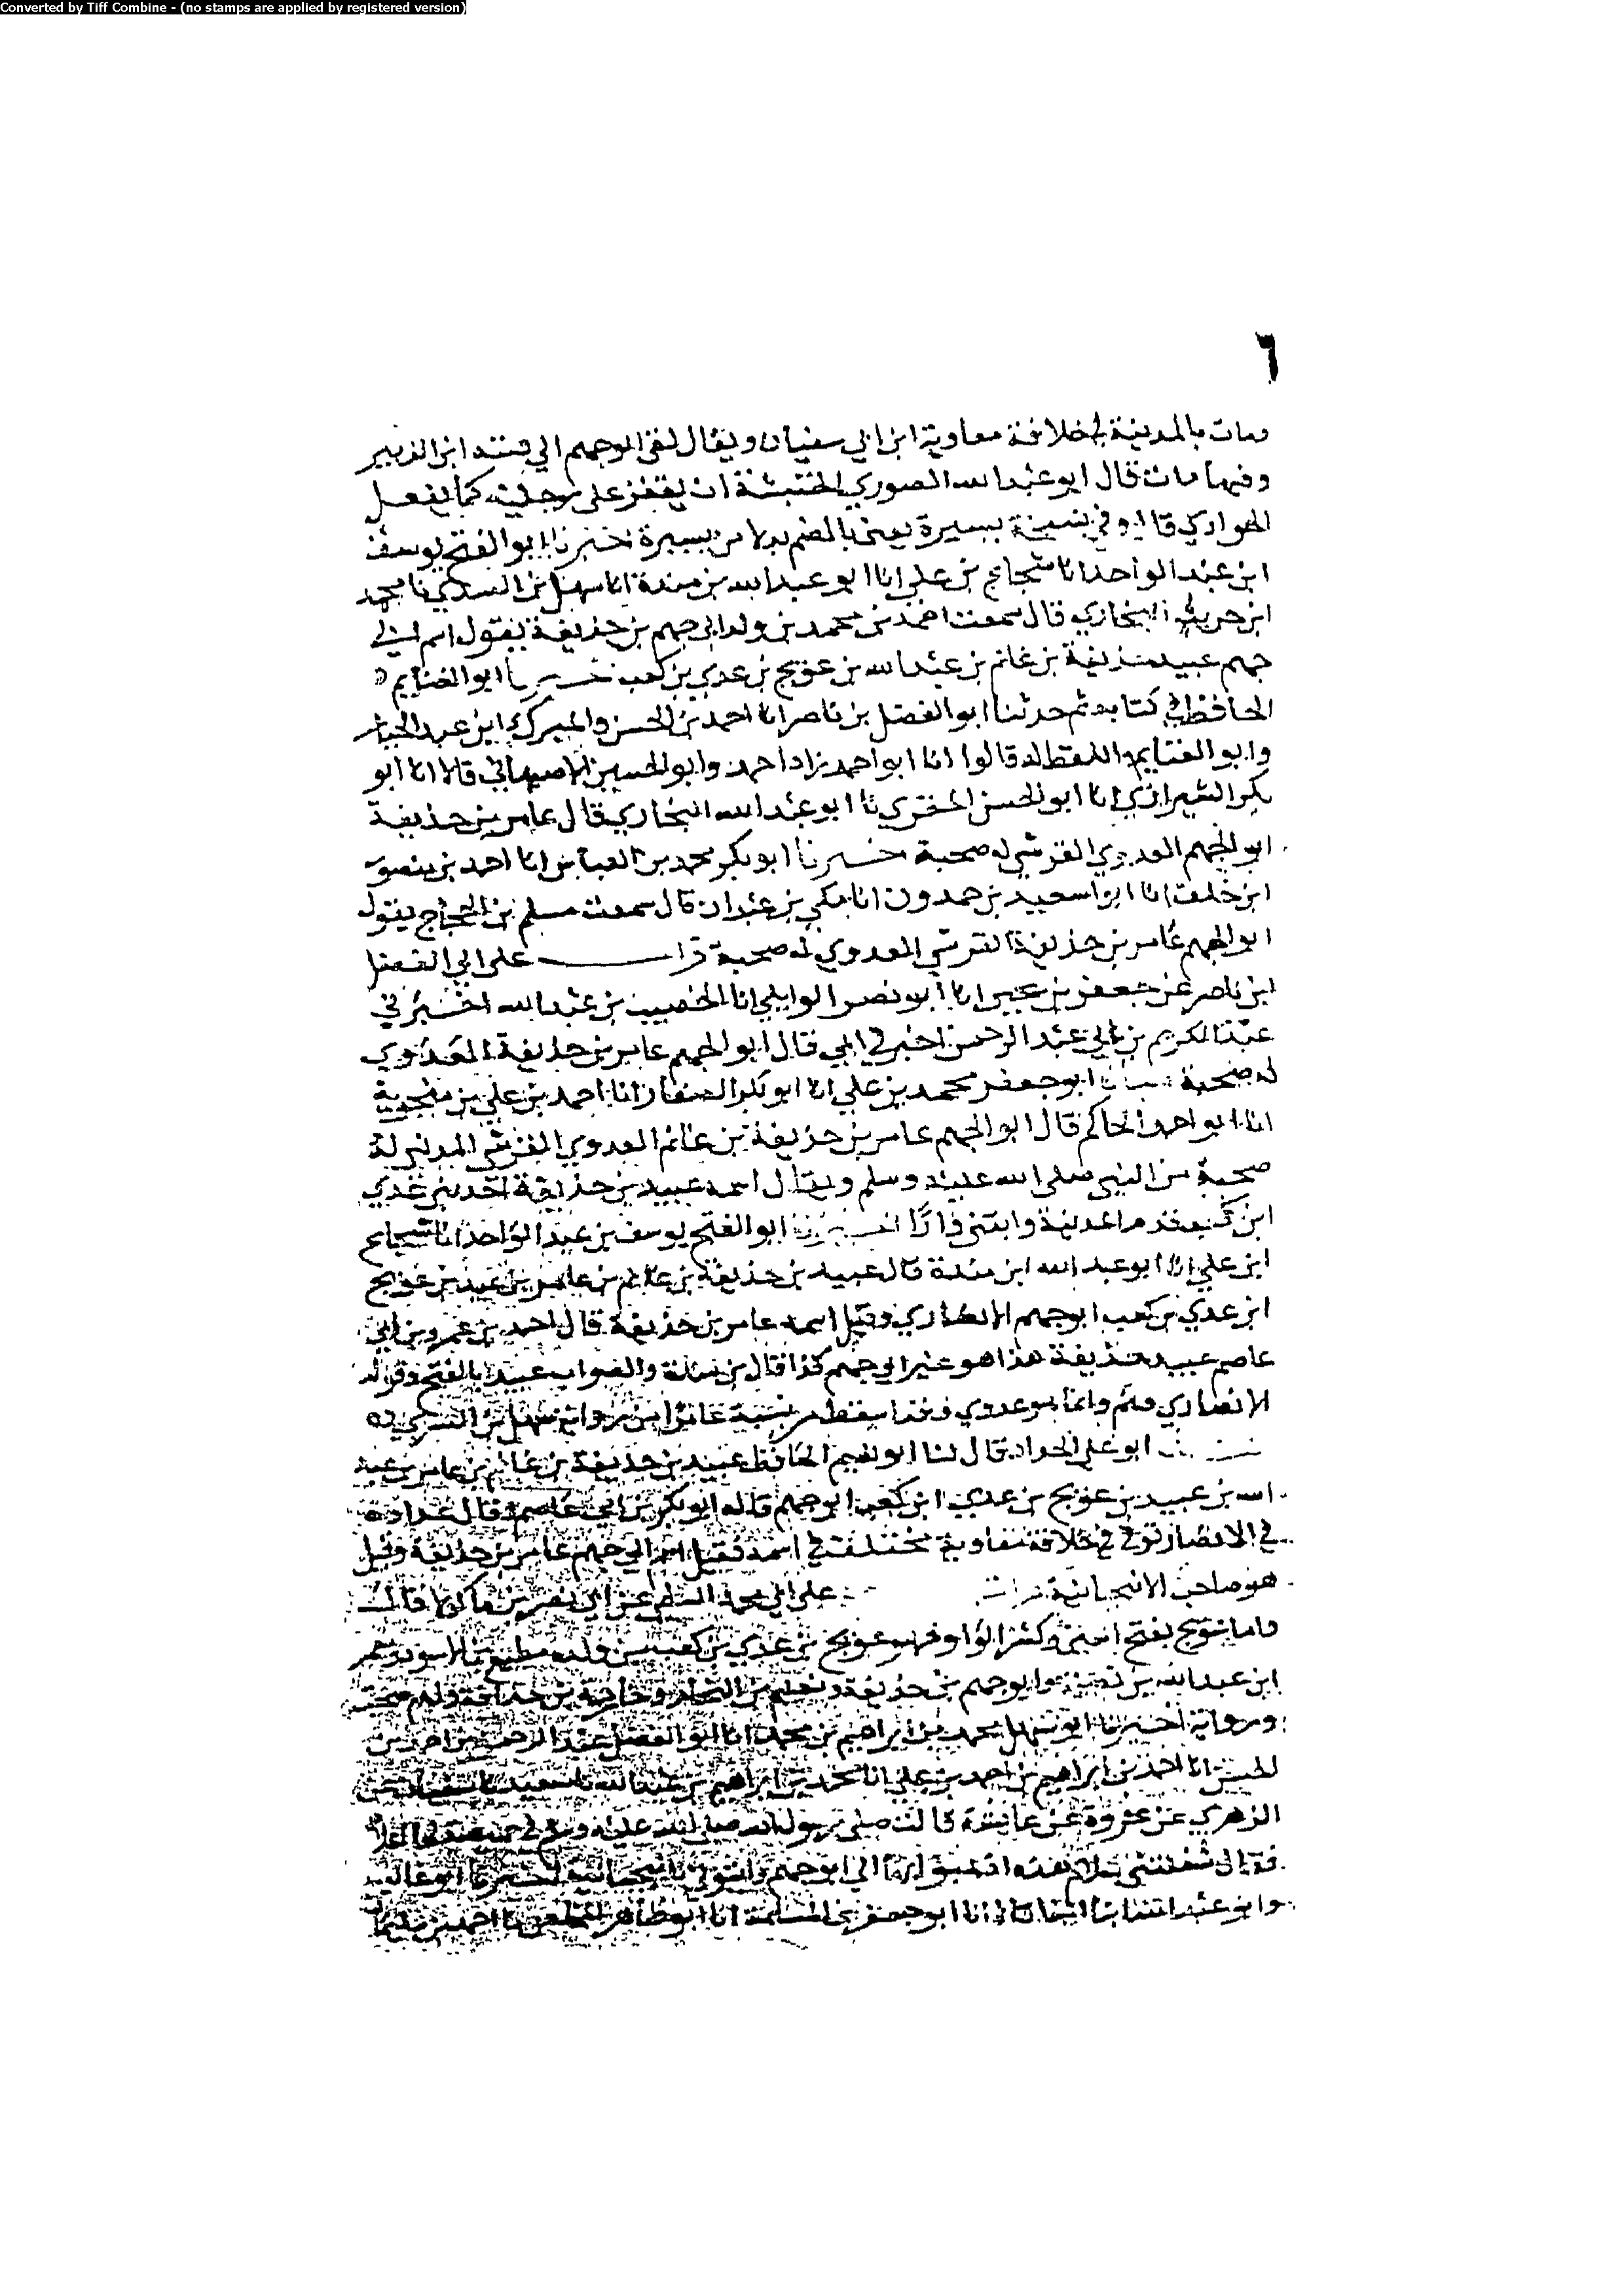 Converted by Tiff Combine - (no stamps are applied by registered version)
٦
ومات بالمدينة في خلافة معاوية ابن ابي سفيان ويقال بقي ابو جهم الي فتنة ابن الزبير
وفيها مات قال ابو عبد الله الصوري ان يقفز على رجليه كما يفعل
قال وفي نسخة يسيرة يعني بالضم بدلا من يسيرة اخبرنا ابو الفتح يوسف
ابن عبد الواحد انا شجاع بن علي انا ابو عبد الله بن مندة انا سهل بن السري نا محمد
ابن حريث البخاري قال سمعت احمد بن محمد بن ولد ابي جهم بن حذيفة يقول اسم ابي
جهم عبيد بن حذيفة بن غانم بن عبد الله بن عويج بن عدي بن كعب اخبرنا ابو الغنايم
الحافظ في كتابه ثم حدثنا ابو الفضل بن ناصر انا احمد بن الحسن والمبرك ابن عبد الجبار
وابو الغنايم واللفظ له قالوا انا ابو احمد زاد احمد وابو الحسين الاصبهاني قالا انا ابو
بكر الشيرازي انا ابو الحسن المقري نا ابو عبد الله البخاري قال عامر بن حذيفة
ابو الجهم العدوي القرشي له صحبة اخبرنا ابو بكر محمد بن العباس انا احمد بن منصور
ابن خلف انا ابو اسعيد بن حمدون انا مكي بن عبدان قال سمعت مسلم بن الحجاج يقول
ابو الجهم عامر بن حذيفة القرشي العدوي له صحبة قرات على ابي الفضل
ابن ناصر عن جعفر بن يحيى انا ابو نصر الوايلي انا الخصيب بن عبد الله اخبرني
عبد الكريم بن ابي عبد الرحمن اخبرني ابي قال ابو الجهم عامر بن حذيفة العدوي
له صحبة انبانا ابو جعفر محمد بن علي انا ابو بكر الصفار انا احمد بن علي بن منجوية
انا ابو احمد الحاكم قال ابو الجهم عامر بن حذيفة بن غانم العدوي القرشي المدني له
صحبة من النبي صلى الله عليه وسلم ويقال اسمه عبيد بن حذيفة احد بني عدي
ابن كعب قدم المدينة وابتنى دارا اخبرنا ابو الفتح يوسف بن عبد الواحد انا شجاع
ابن علي انا ابو عبد الله ابن مندة قال عبيد بن حذيفة بن غانم بن عامر بن عبيد بن عويج
ابن عدي بن كعب ابو جهم الانصاري وقيل اسمه عامر بن حذيفة قال احمد بن عمرو بن ابي
عاصم عبيد بن حذيفة هذا هو غير ابي جهم كذا قال بن مندة والصواب عبيد بالفتح وقوله
الانصاري وهم وانما هو عدوي وقد اسقط من نسبة عامر ابن رواية سهل بن السري
ابو علي الحداد قال لنا ابو نعيم الحافظ عبيد بن حذيفة بن غانم بن عامر بن عبد
الله بن عبيد بن عويج بن عدي ابن كعب ابو جهم قاله ابو بكر بن ابي عاصم وقال عداده
في الانصار توفي في خلافة معاوية مختلف في اسمه فقيل اسم ابي جهم عامر بن حذيفة وقيل
هو صاحب الانبجانية قرات على ابي محمد السلمي عن ابي نصر بن ماكولا قال
واما عويج بفتح العين وكسر الواو فهو عويج بن عدي بن كعب من ولده مطيع بن الاسود
ابن عبد الله بن نضلة وابو جهم بن حذيفة ونعيم بن النحام وخارجة بن حذافة ولهم صحبة
ورواية اخبرنا ابو سهل محمد بن ابراهيم بن محمد انا ابو الفضل عبد الرحمن بن احمد بن
الحسن انا احمد بن ابراهيم بن احمد بن علي انا محمد بن ابراهيم بن عبد الله نا سعيد نا سفيان عن
الزهري عن عروة عن عايشة قالت صلى رسول الله صلى الله عليه وسلم في خميصة لها اعلام
فقال شغلتني اعلام هذه اذهبوا بها الي ابو جهم وايتوني بانبجانية اخبرنا ابو غالب
وابو عبد الله ابنا البنا قالا انا ابو جعفر بن المسلمة انا ابو طاهر المخلص نا احمد بن سليمان